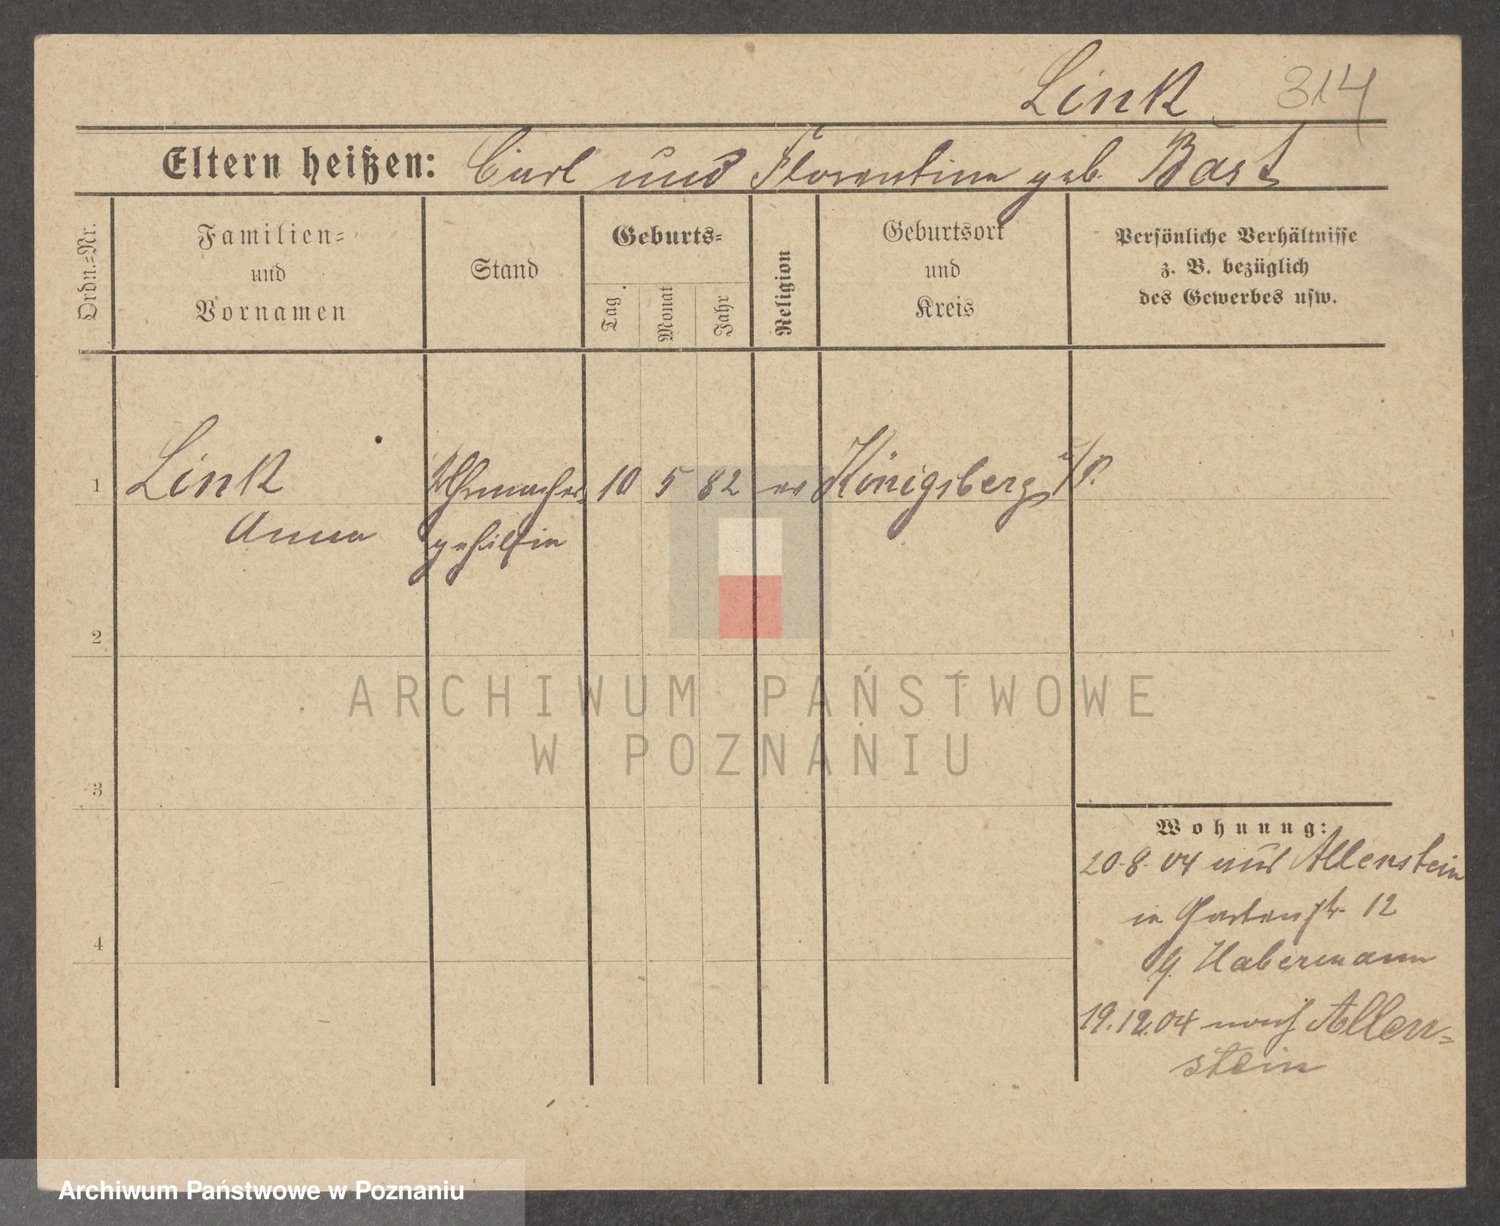 Link
314
Eltern heißen: Carl und Florentine geb. Bast
Ordn.-Nr.
Familien-
und
Vornamen
Stand
Geburts-
Tag
Monat
Jahr
Religion
Geburtsort
und
Kreis
Persönliche Verhältnisse
z. B. bezüglich
des Gewerbes usw.
1 Link Uhrmacher- 10 5 82 ev Königsberg i/P.
Anna gehilfin
2
3
4
Wohnung:
20.8.04 aus Allenstein
in Gartenstr. 12
b/ Habermann
19.12.04 nach Allen-
stein
ARCHIWUM PAŃSTWOWE
W POZNANIU
Archiwum Państwowe w Poznaniu